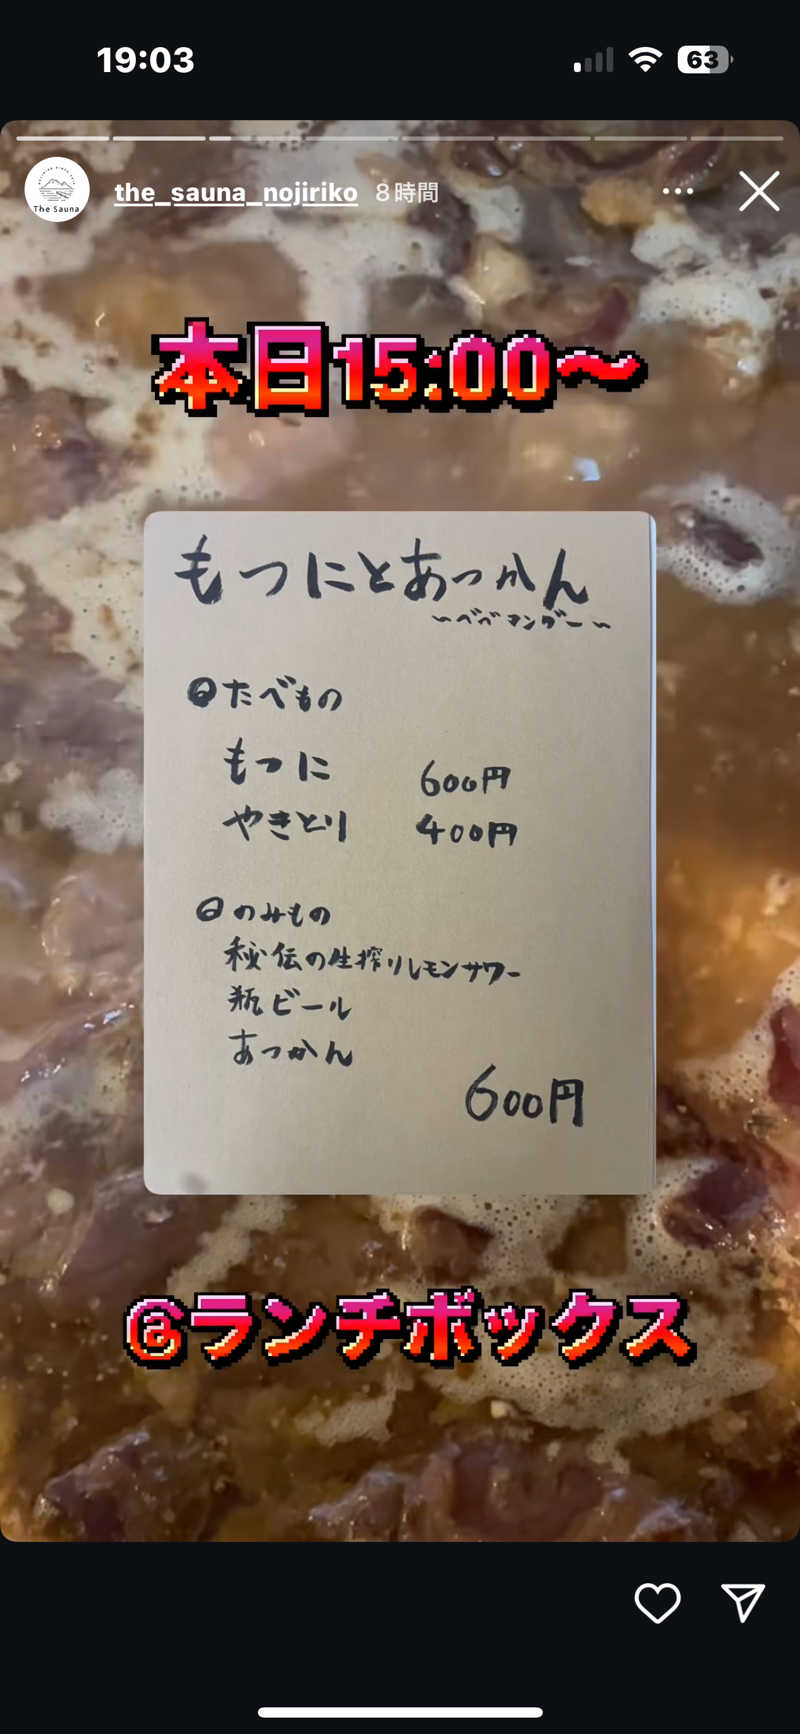 19:03
63
The Sauna
the_sauna_nojiriko 8時間
本日15:00〜
もつにとあっかん
〜べべマンデー〜
たべもの
もつに 600円
やきとり 400円
のみもの
秘伝の生搾りレモンサワー
瓶ビール
あつかん
600円
@ランチボックス